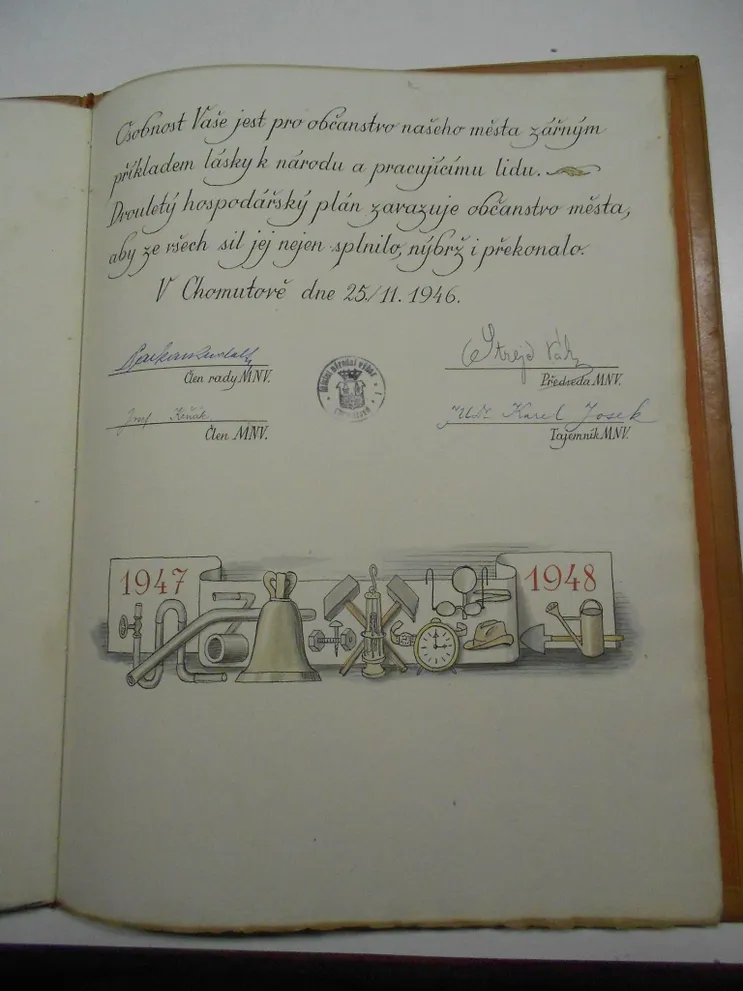 Osobnost Vaše jest pro občanstvo našeho města zářným
příkladem lásky k národu a pracujícímu lidu.
Dvouletý hospodářský plán zavazuje občanstvo města,
aby ze všech sil jej nejen splnilo, nýbrž i překonalo.
V Chomutově dne 25./11. 1946.
Člen rady MNV.
Místní národní výbor
Strejd
Předseda MNV.
Josef
Člen MNV.
JUDr. Karel Josek
Tajemník MNV.
1947
1948